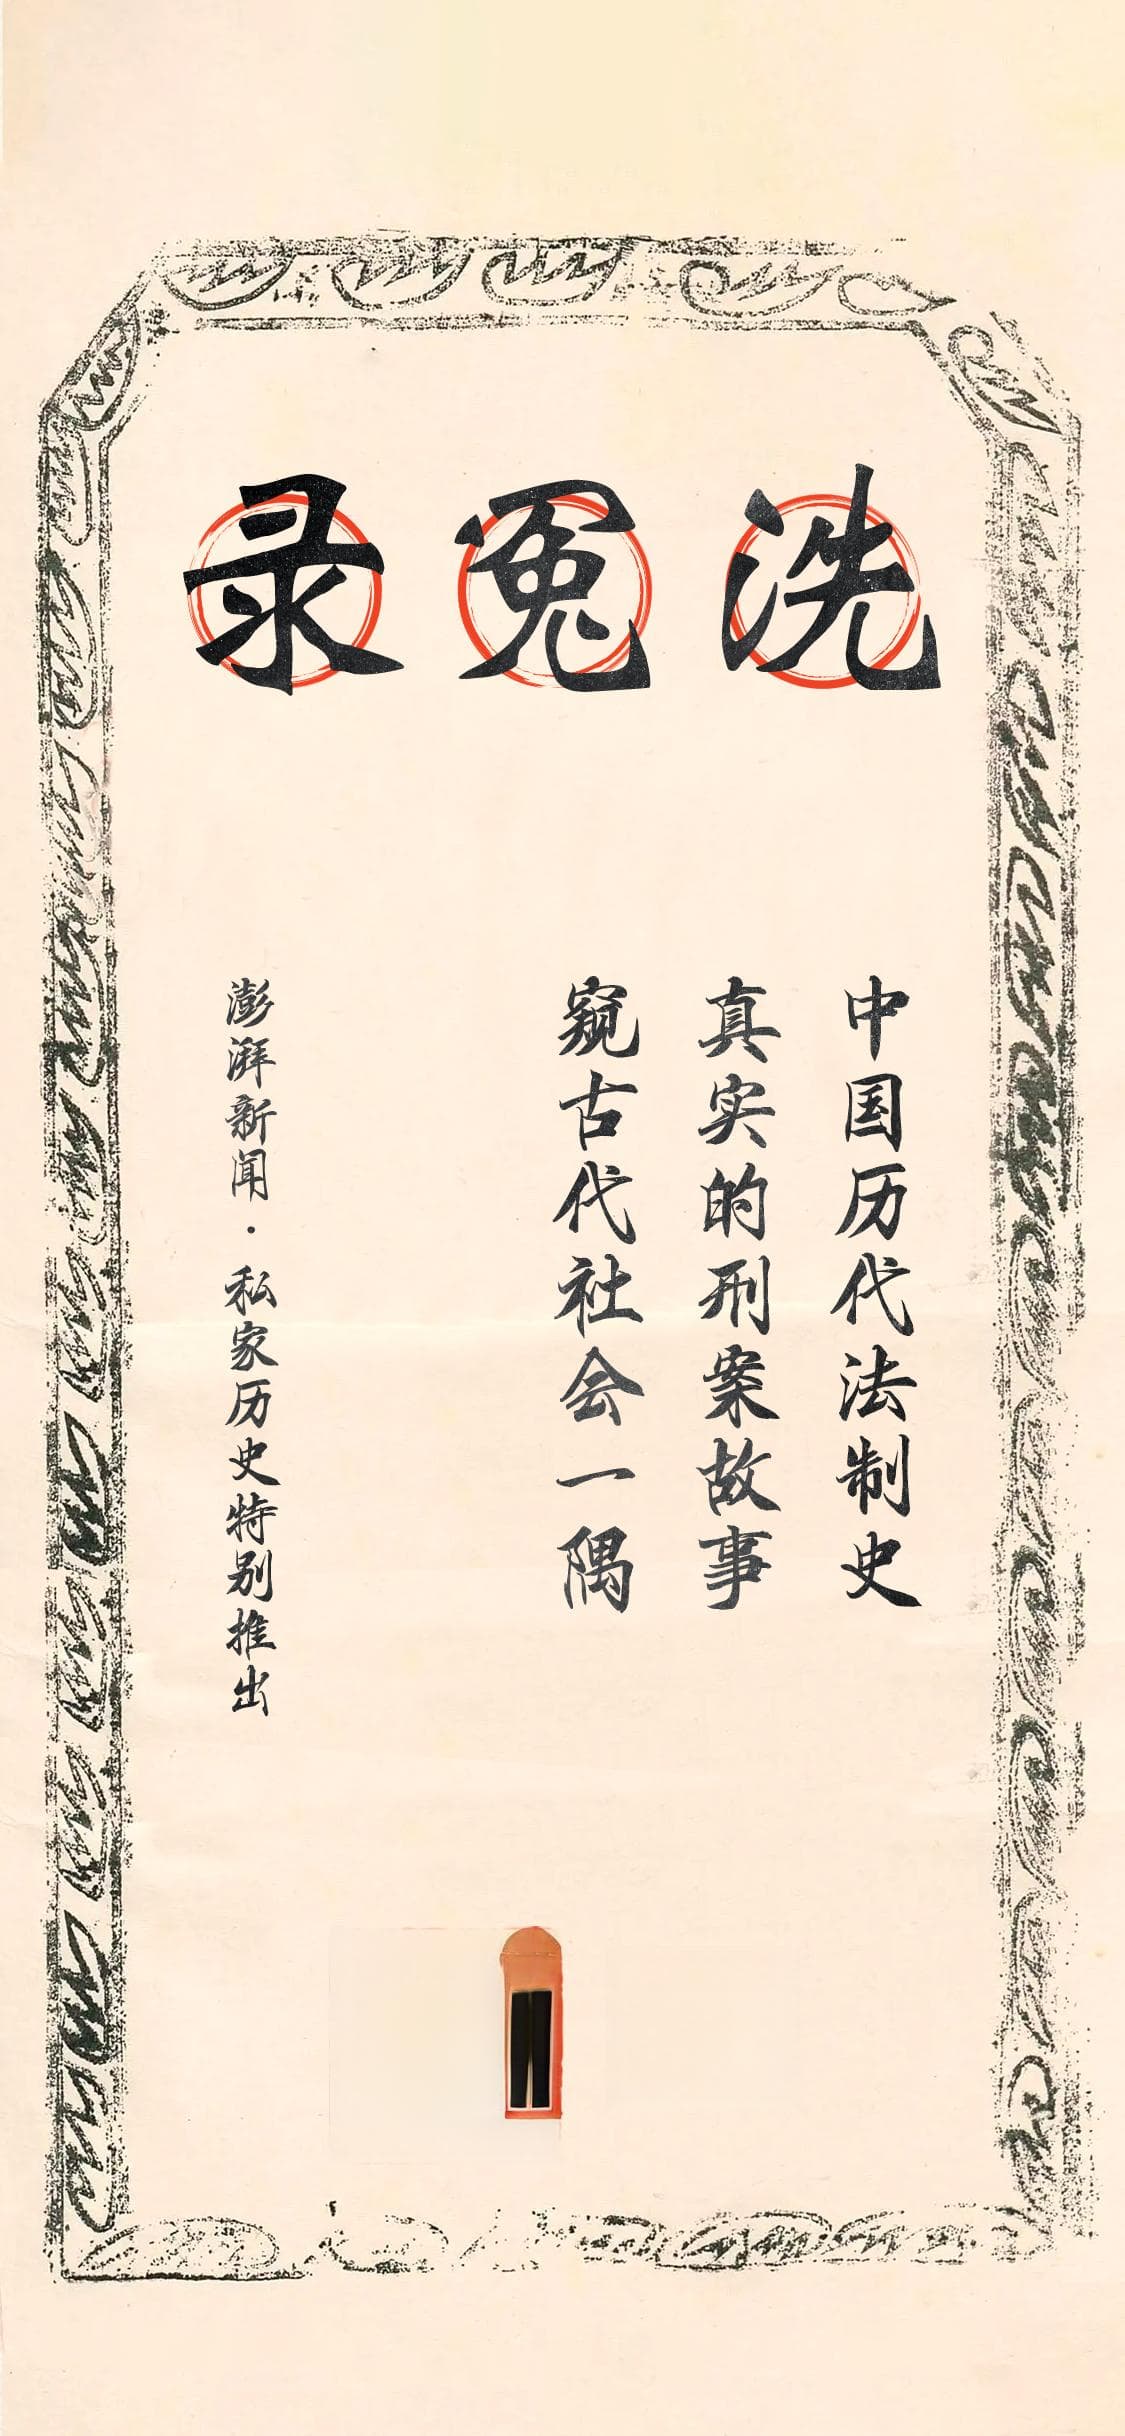 洗冤录
中国历代法制史
真实的刑案故事
窥古代社会一隅
澎湃新闻·私家历史特别推出